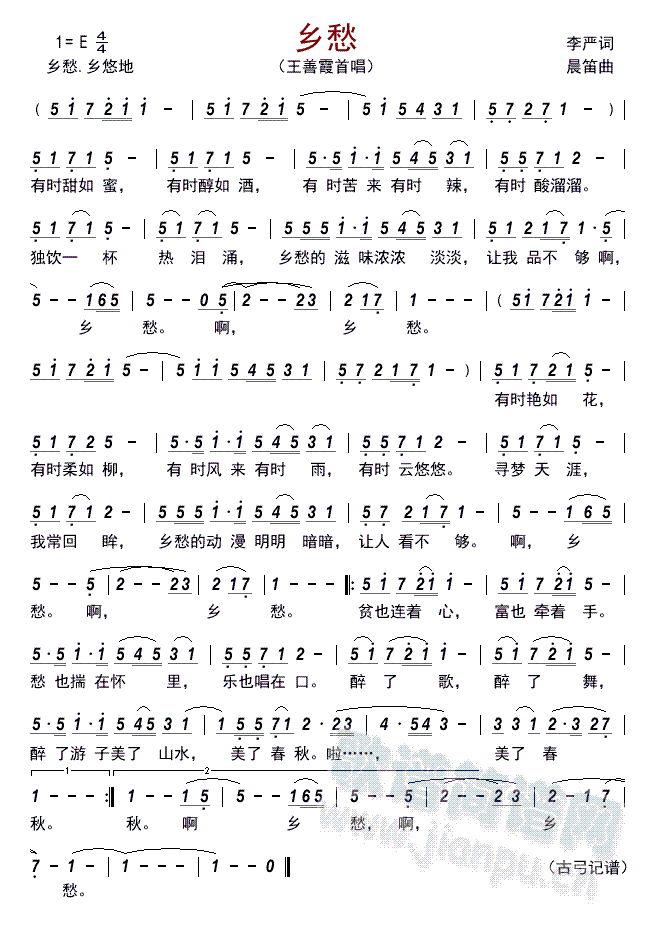 乡愁
1= E 4/4
李严词
乡愁.乡悠地
（王善霞首唱）
晨笛曲
( 5 1 7 2 1 1 - | 5 1 7 2 1 5 - | 5 1 5 4 3 1 | 5 7 2 7 1 - ) |
5 1 7 1 5 - | 5 1 7 1 5 - | 5 · 5 1 · 1 5 4 5 3 1 | 5 5 7 1 2 - |
有时甜如 蜜， 有时醇如 酒， 有 时苦 来 有时 辣， 有时 酸溜溜。
5 1 7 1 5 - | 5 1 7 1 5 - | 5 5 5 1 · 1 5 4 5 3 1 | 5 1 2 1 7 1 · 5 |
独饮一 杯 热 泪 涌， 乡愁的 滋 味浓浓 淡淡， 让我 品不 够 啊，
5 - - 1 6 5 | 5 - - 0 5 | 2 - - 2 3 | 2 1 7 | 1 - - - | ( 5 1 7 2 1 1 - |
乡 愁。 啊， 乡 愁。
5 1 7 2 1 5 - | 5 1 1 5 4 5 3 1 | 5 7 2 1 7 1 - ) | 5 1 7 2 1 5 - |
有时艳如 花，
5 1 7 2 5 - | 5 · 5 1 · 1 5 4 5 3 1 | 5 5 7 1 2 - | 5 1 7 1 5 - |
有时柔如 柳， 有 时风 来 有时 雨， 有时 云悠悠。 寻梦 天 涯，
5 1 7 1 2 - | 5 5 5 1 · 1 5 4 5 3 1 | 5 7 2 1 7 1 - | 5 - - 1 6 5 |
我常回 眸， 乡愁的动 漫 明明 暗暗， 让人 看不 够。 啊， 乡
5 - - 5 | 2 - - 2 3 | 2 1 7 | 1 - - - ‖: 5 1 7 2 1 1 - | 5 1 7 2 1 5 - |
愁。 啊， 乡 愁。 贫也连着 心， 富也 牵着 手。
5 · 5 1 · 1 5 4 5 3 1 | 5 5 7 1 2 - | 5 1 7 2 1 1 - | 5 1 7 2 1 5 - |
愁 也揣 在怀 里， 乐也唱在 口。 醉 了 歌， 醉 了 舞，
5 · 5 1 · 1 5 4 5 3 1 | 1 5 5 7 1 | 2 · - 2 3 | 4 · 5 4 3 - | 3 3 1 2 · 3 2 7 |
醉 了游 子美了 山水， 美了 春 秋。啦……， 美了 春
1 2
1 - - - :‖ 1 - - 1 5 | 5 - - 3 1 6 5 | 5 - - 5 | 2 - - 2 3 | 2 - 1 7 |
秋。 秋。 啊 乡 愁，啊， 乡
7 - 1 - | 1 - - - ‖
（古弓记谱）
愁。
www.jianpu.cn